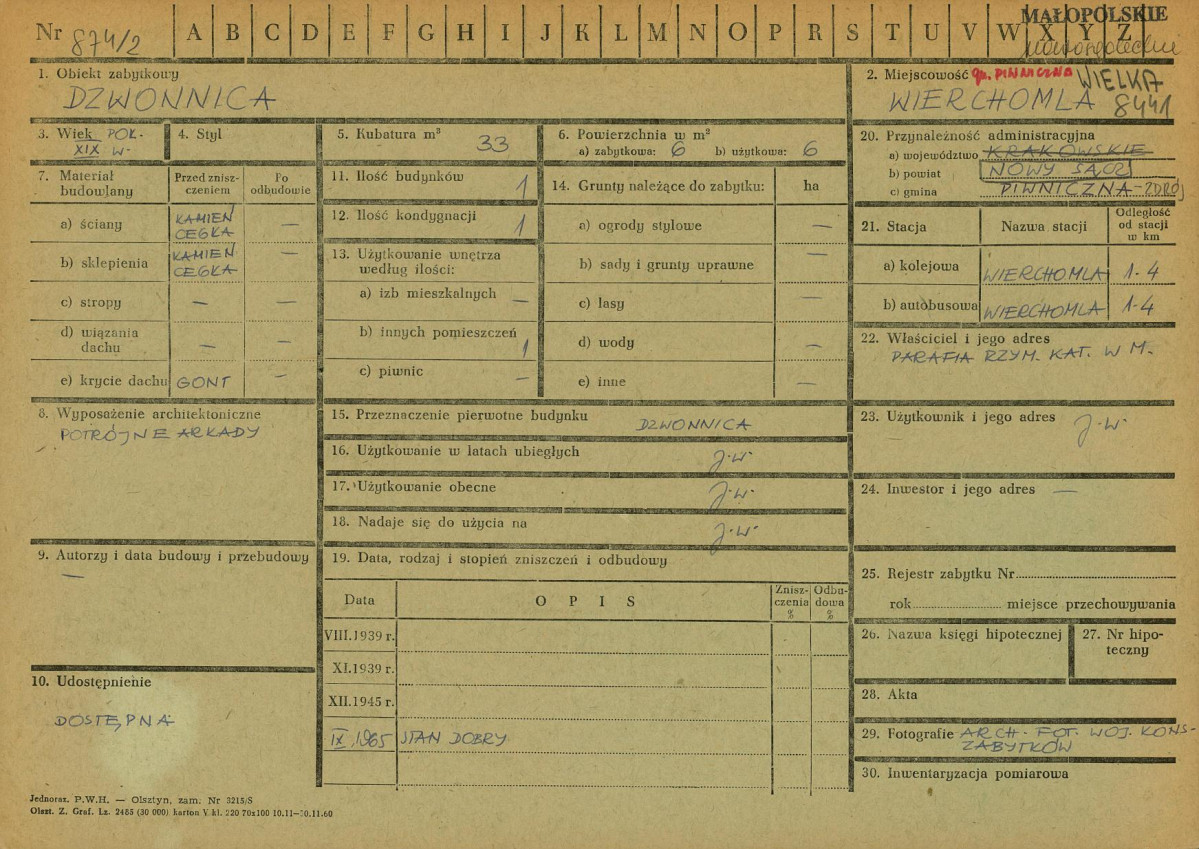 Nr 874/2 A B C D E F G H I J K L M N O P R S T U V W X Y Z MAŁOPOLSKIE
nowosądeckie
1. Obiekt zabytkowy
DZWONNICA
2. Miejscowość gm. PIWNICZNA WIELKA
WIERCHOMLA 8441
3. Wiek POŁ.
XIX W.
4. Styl
5. Kubatura m³
33
6. Powierzchnia w m²
a) zabytkowa: 6 b) użytkowa: 6
20. Przynależność administracyjna
a) województwo KRAKOWSKIE
b) powiat NOWY SĄCZ
c) gmina PIWNICZNA-ZDRÓJ
7. Materiał budowlany
Przed zniszczeniem
Po odbudowie
a) ściany KAMIEŃ CEGŁA —
b) sklepienia KAMIEŃ CEGŁA —
c) stropy — —
d) wiązania dachu — —
e) krycie dachu GONT —
11. Ilość budynków 1
12. Ilość kondygnacji 1
13. Użytkowanie wnętrza
według ilości:
a) izb mieszkalnych —
b) innych pomieszczeń 1
c) piwnic —
14. Grunty należące do zabytku: ha
a) ogrody stylowe —
b) sady i grunty uprawne —
c) lasy —
d) wody —
e) inne —
21. Stacja Nazwa stacji Odległość od stacji w km
a) kolejowa WIERCHOMLA 1-4
b) autobusowa WIERCHOMLA 1-4
22. Właściciel i jego adres
PARAFIA RZYM. KAT. W M.
8. Wyposażenie architektoniczne
POTRÓJNE ARKADY
15. Przeznaczenie pierwotne budynku
DZWONNICA
16. Użytkowanie w latach ubiegłych j.w.
17. Użytkowanie obecne j.w.
18. Nadaje się do użycia na j.w.
23. Użytkownik i jego adres j.w.
24. Inwestor i jego adres —
9. Autorzy i data budowy i przebudowy
—
19. Data, rodzaj i stopień zniszczeń i odbudowy
Data OPIS Zniszczenia % Odbudowa %
VIII.1939 r.
XI.1939 r.
XII.1945 r.
IX.1965 STAN DOBRY
25. Rejestr zabytku Nr
rok miejsce przechowywania
26. Nazwa księgi hipotecznej
27. Nr hipoteczny
28. Akta
10. Udostępnienie
DOSTĘPNA
29. Fotografie ARCH. FOT. WOJ. KONS.
ZABYTKÓW
30. Inwentaryzacja pomiarowa
Jednoraz. P.W.H. — Olsztyn, zam. Nr 3215/S
Olszt. Z. Graf. Lz. 2485 (30 000) karton V kl. 220 70x100 10.11—30.11.60